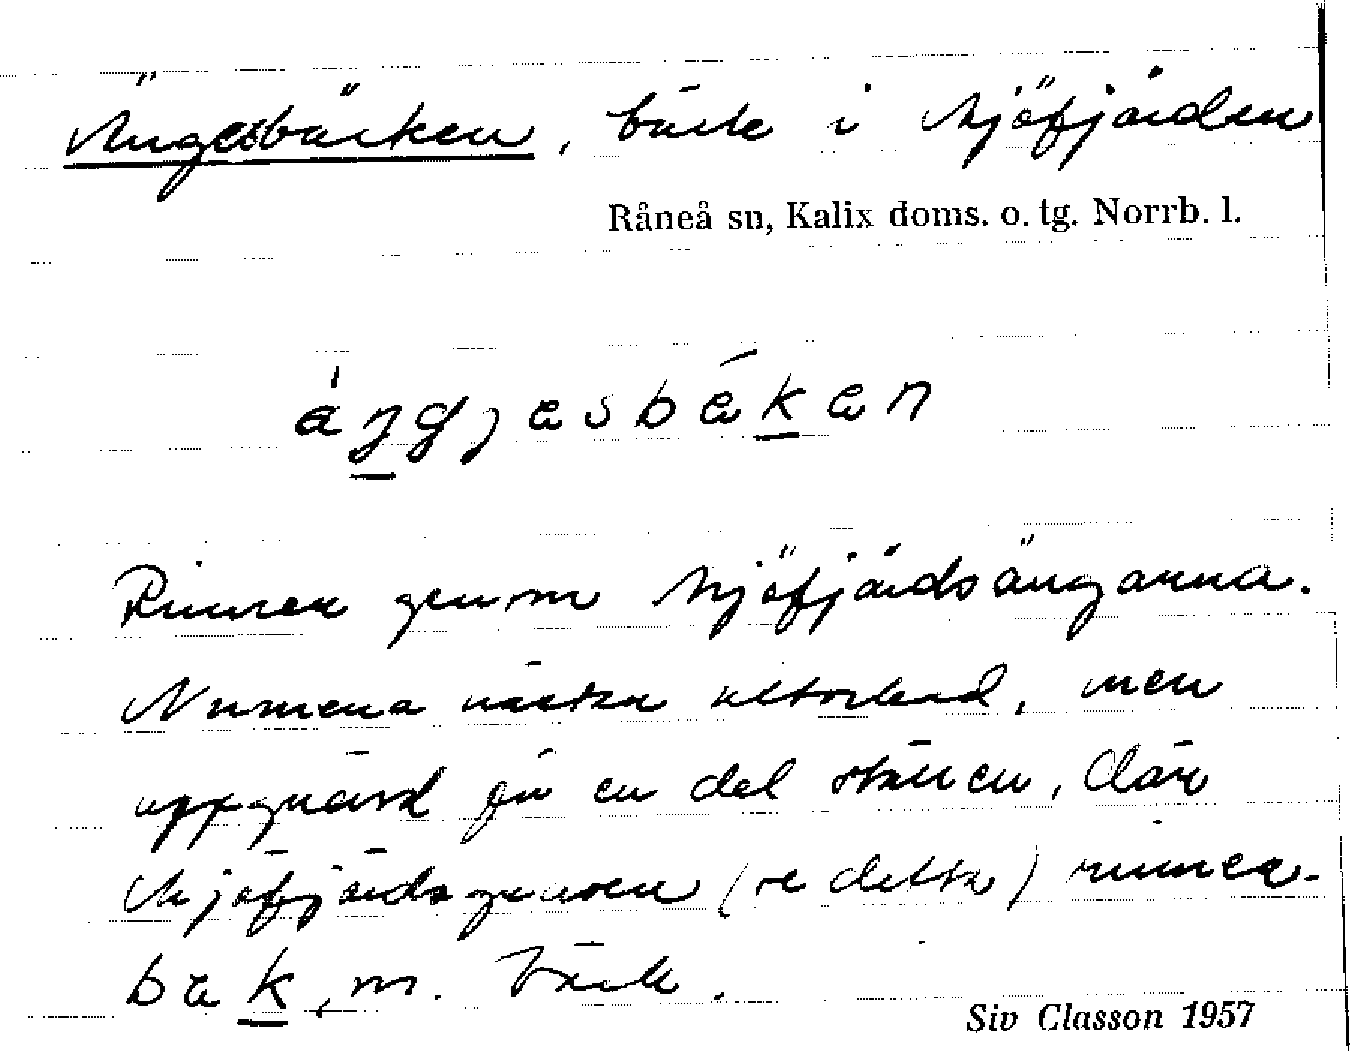 Ängesbäcken, bäck i Mjöfjärden
Råneå sn, Kalix doms. o. tg. Norrb. l.
Rinner genom Mjöfjärdsängarna.
Numera nästan uttorkad, men
uppgrävd på en del ställen, där
Mjöfjärdsgraven (se detta) rinner.
bäk, m. bäck.
Siv Classon 1957